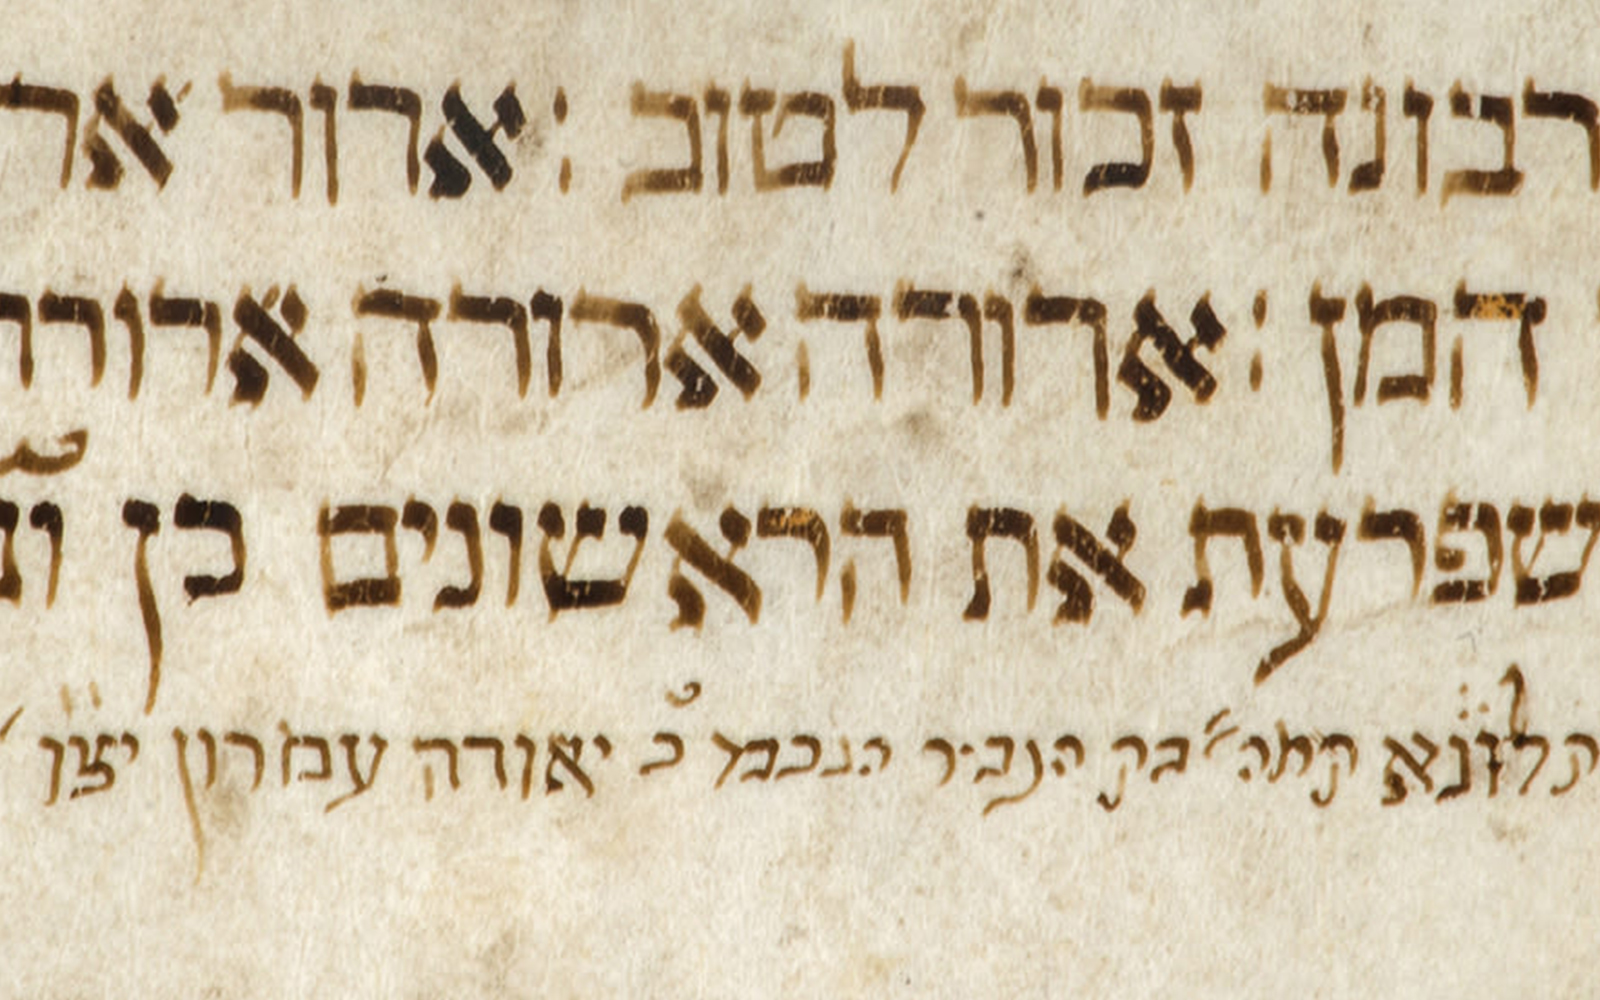 רבונה זכור לטוב : ארור אר
המן : ארורה ארורה ארורר
שפרעת את הראשונים כן
קלונא קמה בק הנכיר כ יאודה עמרון יצו